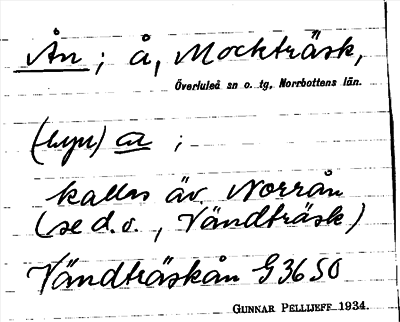 Ån; å, Mockträsk,
Överluleå sn o. tg, Norrbottens län.
(byn) a ;
kallas äv. Norrån
(se d.o., Vändträsk)
Vändträskån G3650
GUNNAR PELLIJEFF 1934.